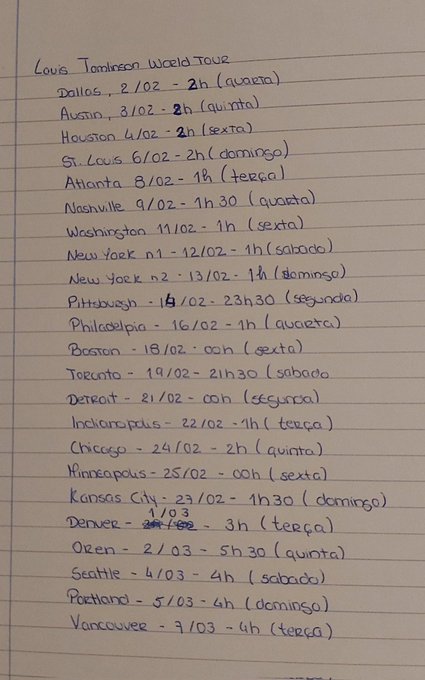 Louis Tomlinson World Tour
Dallas, 2/02 - 2h (quarta)
Austin, 3/02 - 2h (quinta)
Houston 4/02 - 2h (sexta)
St. Louis 6/02 - 2h (domingo)
Atlanta 8/02 - 1h (terça)
Nashville 9/02 - 1h30 (quarta)
Washington 11/02 - 1h (sexta)
New York n1 - 12/02 - 1h (sabado)
New York n2 - 13/02 - 1h (domingo)
Pittsburgh - 14/02 - 23h30 (segunda)
Philadelpia - 16/02 - 1h (quarta)
Boston - 18/02 - 00h (sexta)
Toronto - 19/02 - 21h30 (sabado
Detroit - 21/02 - 00h (segunda)
Indianopolis - 22/02 - 1h (terça)
Chicago - 24/02 - 2h (quinta)
Minneapolis - 25/02 - 00h (sexta)
Kansas City - 27/02 - 1h30 (domingo)
Denver - 1/03 - 3h (terça)
Orem - 2/03 - 5h30 (quinta)
Seattle - 4/03 - 4h (sabado)
Portland - 5/03 - 4h (domingo)
Vancouver - 7/03 - 4h (terça)